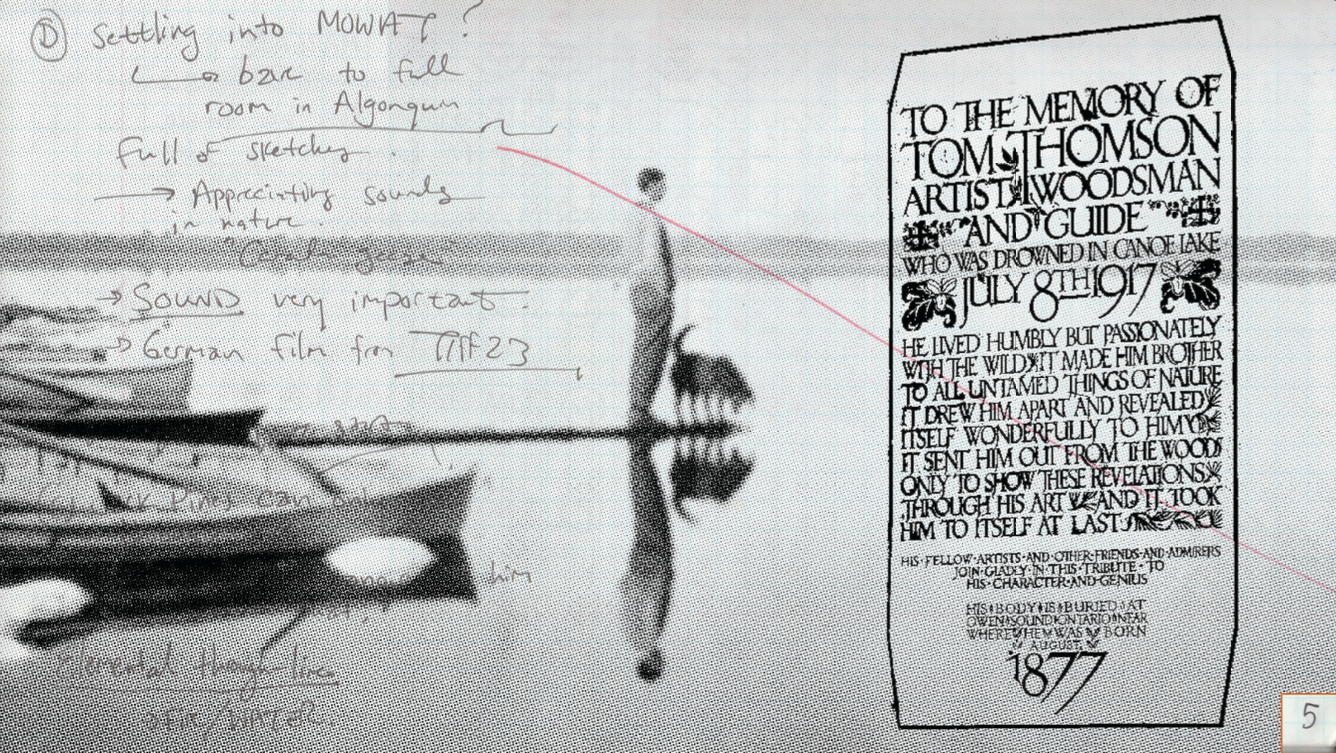 D Settling into MOWAT?
bare to full
room in Algonquin
full of sketches
Appreciating sounds
in nature.
SOUND very important.
German film from TIFF23
start
can
him
Elemental through-line
WATER.
TO THE MEMORY OF
TOM THOMSON
ARTIST WOODSMAN
AND GUIDE
WHO WAS DROWNED IN CANOE LAKE
JULY 8TH 1917
HE LIVED HUMBLY BUT PASSIONATELY
WITH THE WILD IT MADE HIM BROTHER
TO ALL UNTAMED THINGS OF NATURE
IT DREW HIM APART AND REVEALED
ITSELF WONDERFULLY TO HIM
IT SENT HIM OUT FROM THE WOODS
ONLY TO SHOW THESE REVELATIONS
THROUGH HIS ART AND IT TOOK
HIM TO ITSELF AT LAST
HIS·FELLOW·ARTISTS·AND·OTHER·FRIENDS·AND·ADMIRERS
JOIN·GLADLY·IN·THIS·TRIBUTE·TO
HIS·CHARACTER·AND·GENIUS
HIS BODY IS BURIED AT
OWEN SOUND ONTARIO NEAR
WHERE HE WAS BORN
AUGUST
1877
5